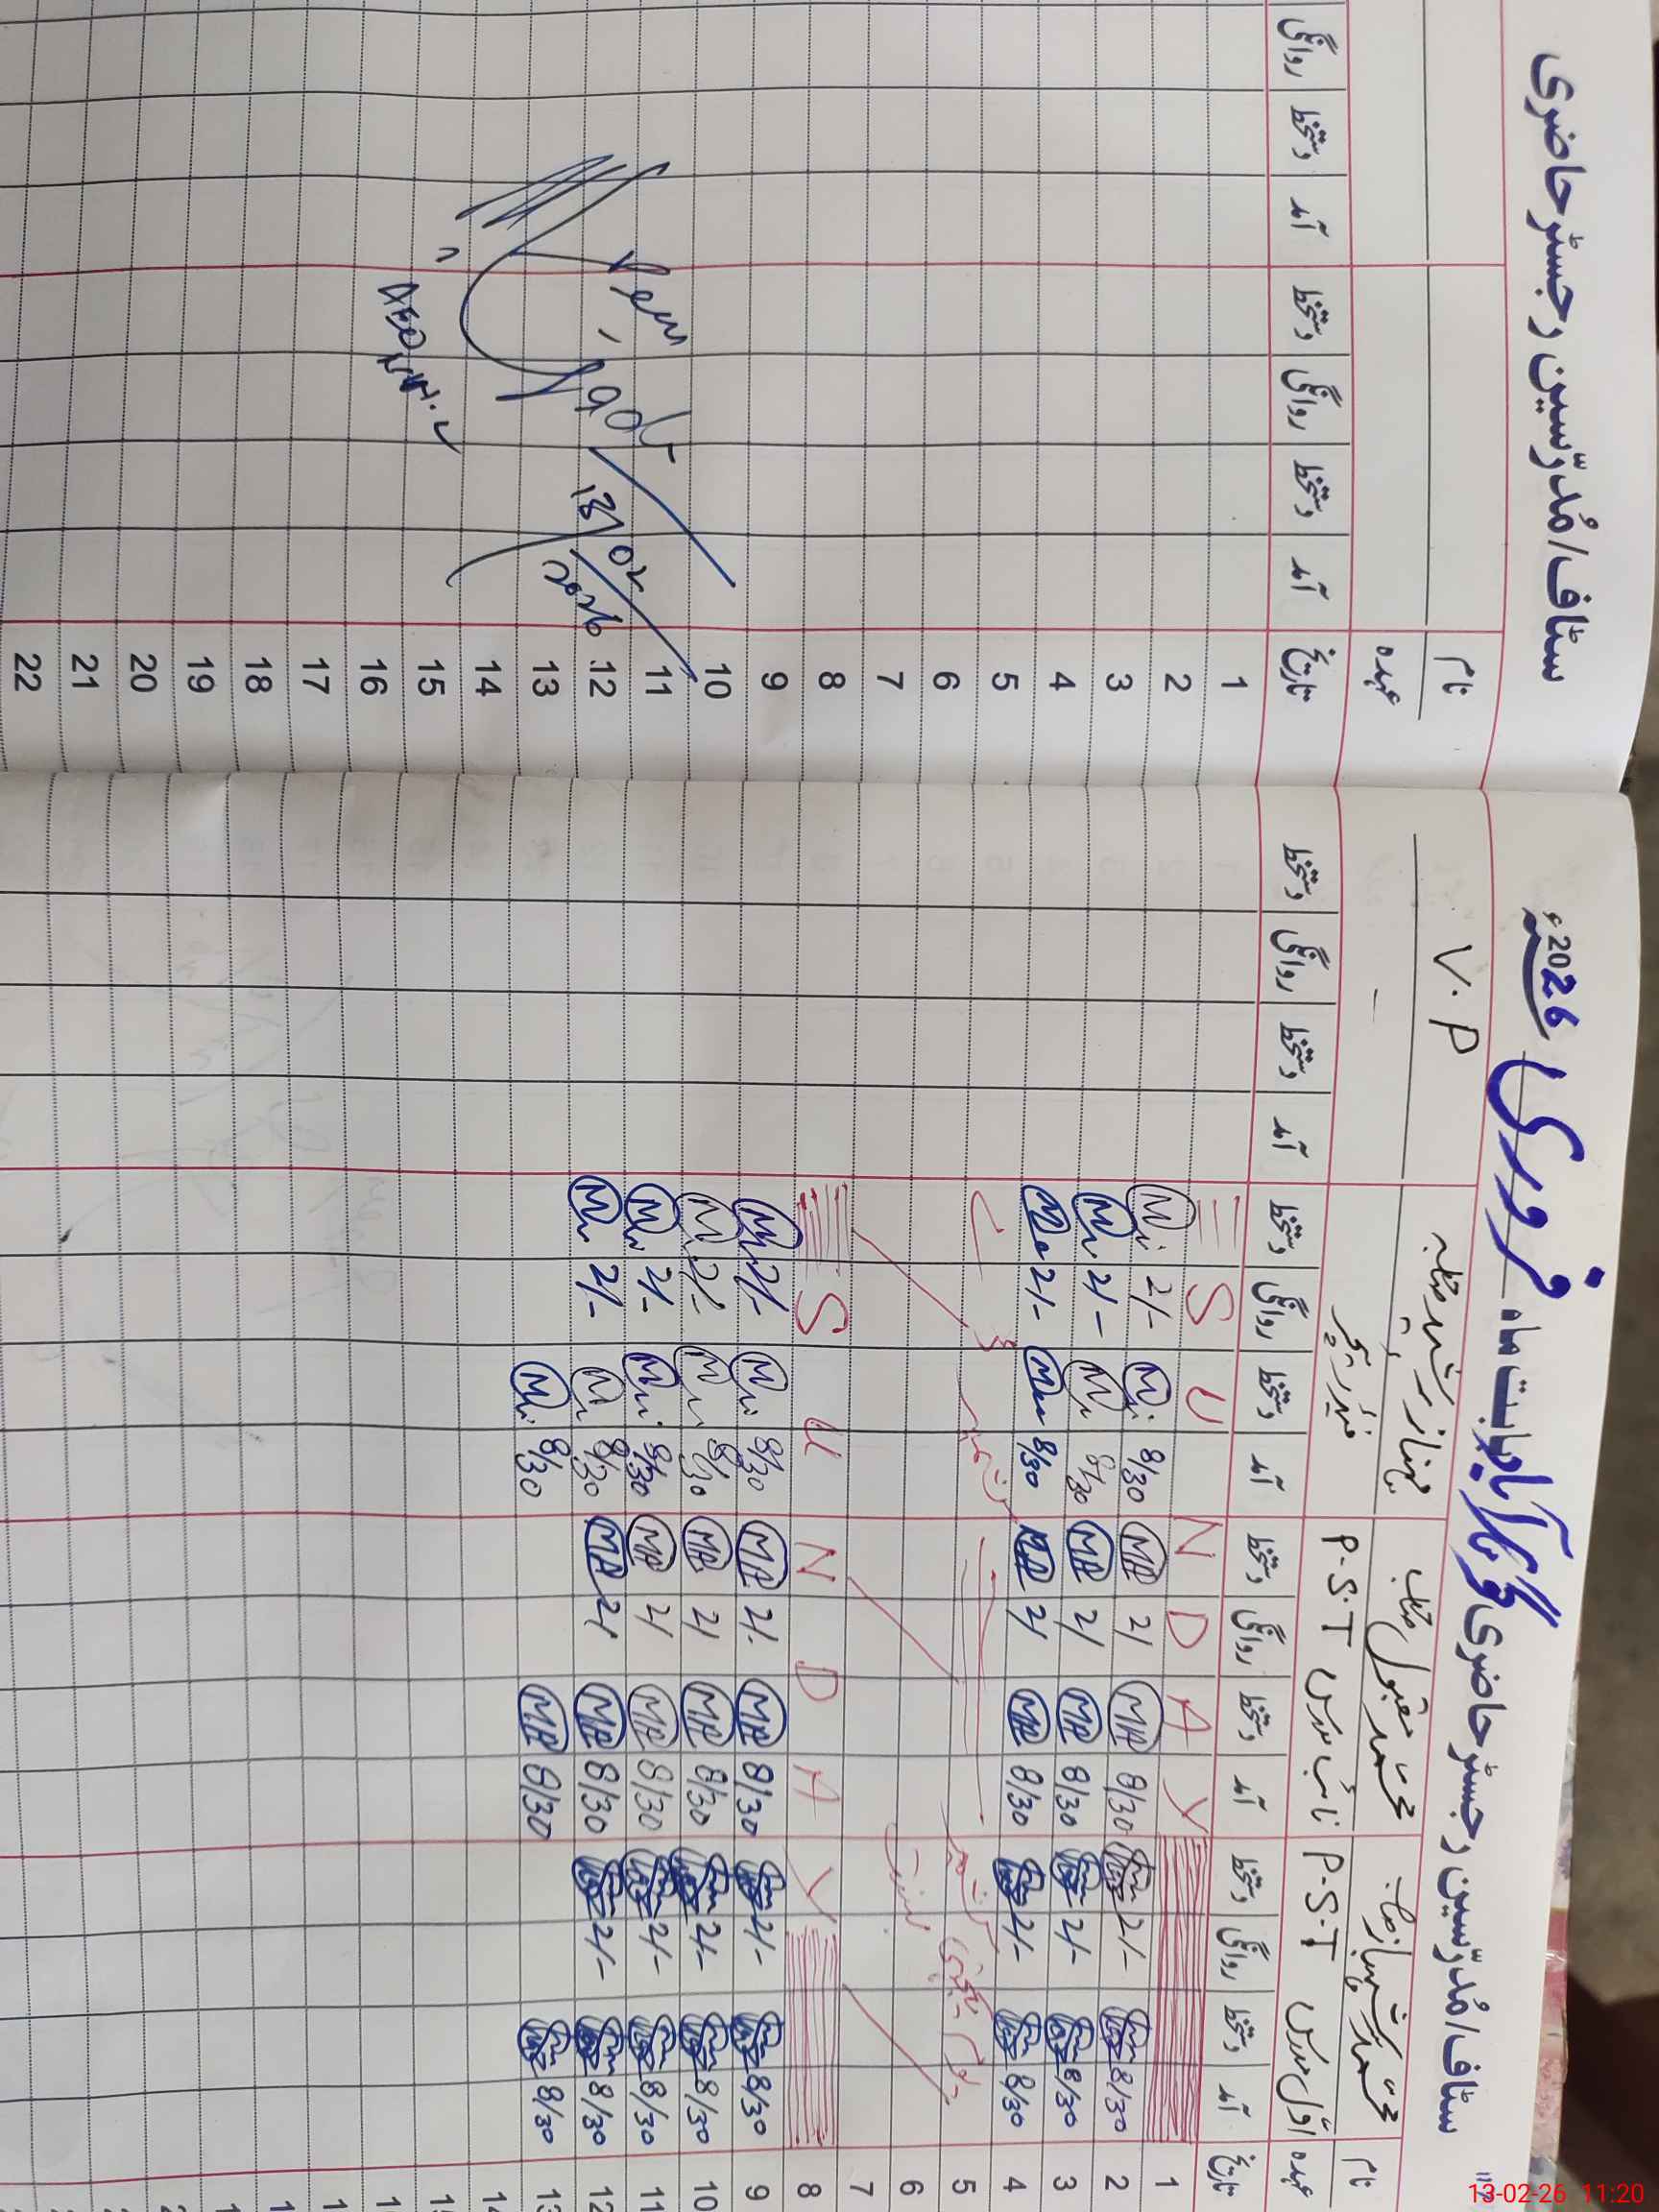 سٹاف/مُدرّسین رجسٹر حاضری بابت ماہ فروری 2026ء
نام محمد شہباز صاحب محمد مقبول صاحب مہناز رشید صاحبہ V.P
عہدہ اوّل مدرس P.S.T نائب مدرس P.S.T —
تاریخ آمد دستخط روانگی دستخط آمد دستخط روانگی دستخط آمد دستخط روانگی دستخط آمد دستخط روانگی دستخط
1 S U N D A Y
2 8/30 2/- 8/30 MR 2/ MR 8/30 2/-
3 8/30 2/- 8/30 MR 2/ MR 8/30 2/-
4 8/30 2/- 8/30 MR 2/ MR 8/30 2/-
5 یوم یکجہتی کشمیر
6
7
8 S U N D A Y
9 8/30 2/- 8/30 MR 2/. MR 8/30 2/-
10 8/30 2/- 8/30 MR 2/ MR 8/30 2/-
11 8/30 2/- 8/30 MR 2/ MR 8/30 2/-
12 8/30 2/- 8/30 MR 2/ MR 8/30 2/-
13 8/30 8/30 MR 8/30
سٹاف/مُدرّسین رجسٹر حاضری
نام
عہدہ
تاریخ آمد دستخط روانگی دستخط آمد دستخط روانگی
1
2
3
4
5
6
7
8
9
10
11
12
13
14
15
16
17
18
19
20
21
22
13/02/2026
13-02-26 11:20